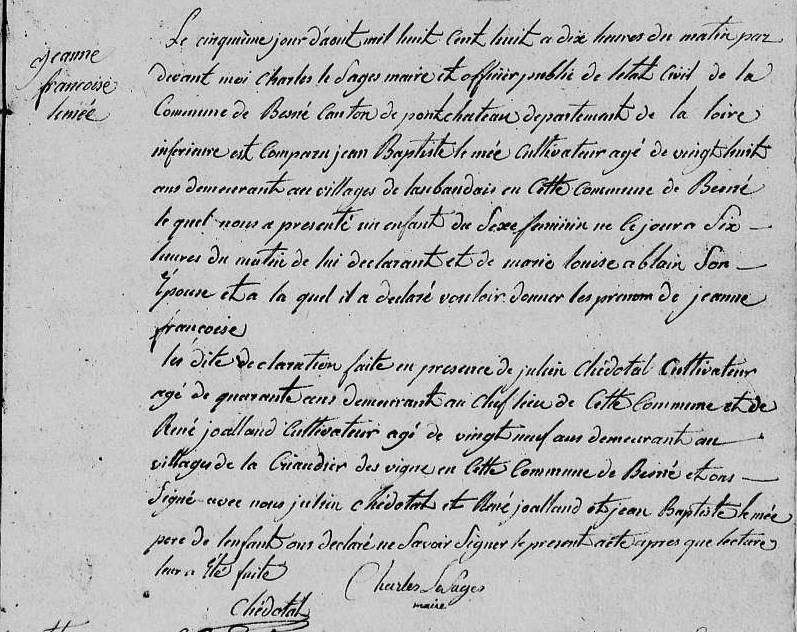 jeanne
francoise
lemée
Le cinquième jour d'aout mil huit Cent huit a dix heures du matin par
devant moi Charles le Sages maire et officier public de letat Civil de la
Commune de Besné Canton de pontchateau departement de la loire
inferieure est Comparu jean Baptiste le mée Cultivateur agé de vingt huit
ans demeurant au villages de en Cette Commune de Besné
le quel nous a presenté un enfant du Sexe feminin ne Ce jour a Six
heures du matin de lui declarant et de marie louise ablain Son
Epouse et a la quel il a declaré vouloir donner les prenom de jeanne
francoise
les dite declaration faite en presence de julien Chédotal Cultivateur
agé de quarante ans demeurant au Chef lieu de Cette Commune et de
René joalland Cultivateur agé de vingt neuf ans demeurant au
villages de la des vigne en Cette Commune de Besné et ons
Signé avec nous julien Chédotal et René joalland et jean Baptiste le mée
pere de lenfant ons declaré ne Savoir Signer le present acte apres que lecture
leur a Été faite
Charles LeSages
maire
Chédotal